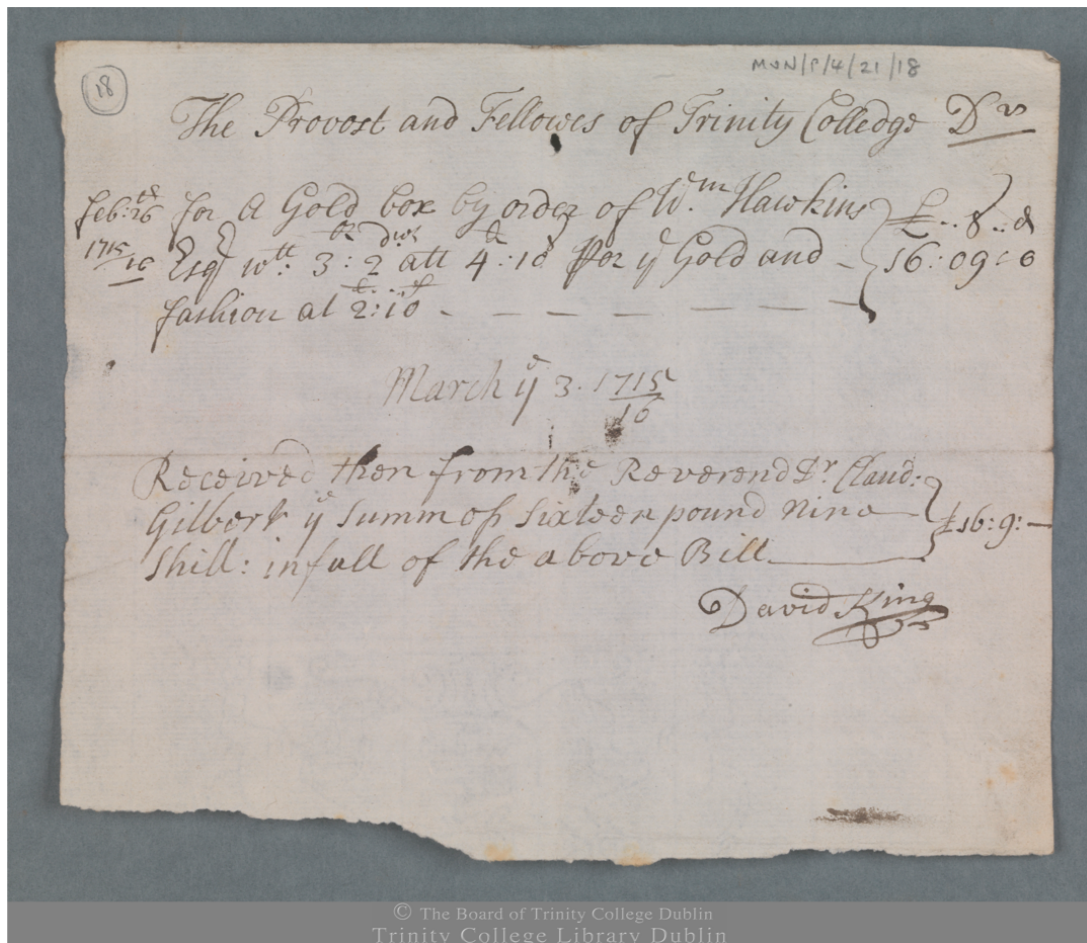 18
MUN/P/4/21/18
The Provost and Fellowes of Trinity Colledge Dr
feb: 26th for A Gold box by order of Wm. Hawkins £ .. s .. d
1715/16 Esqr wtt: 3 oz : 2 dwt att 4 : 10 for ye Gold and - 16 : 09 : 0
fashion at 2 : 10 - - - - - -
March ye 3. 1715/16
Received then from the Reverend Dr. Claud:
Gilbert ye summ of sixteen pound Nine £16 : 9 : -
shill: in full of the above Bill
David King
© The Board of Trinity College Dublin
Trinity College Library Dublin